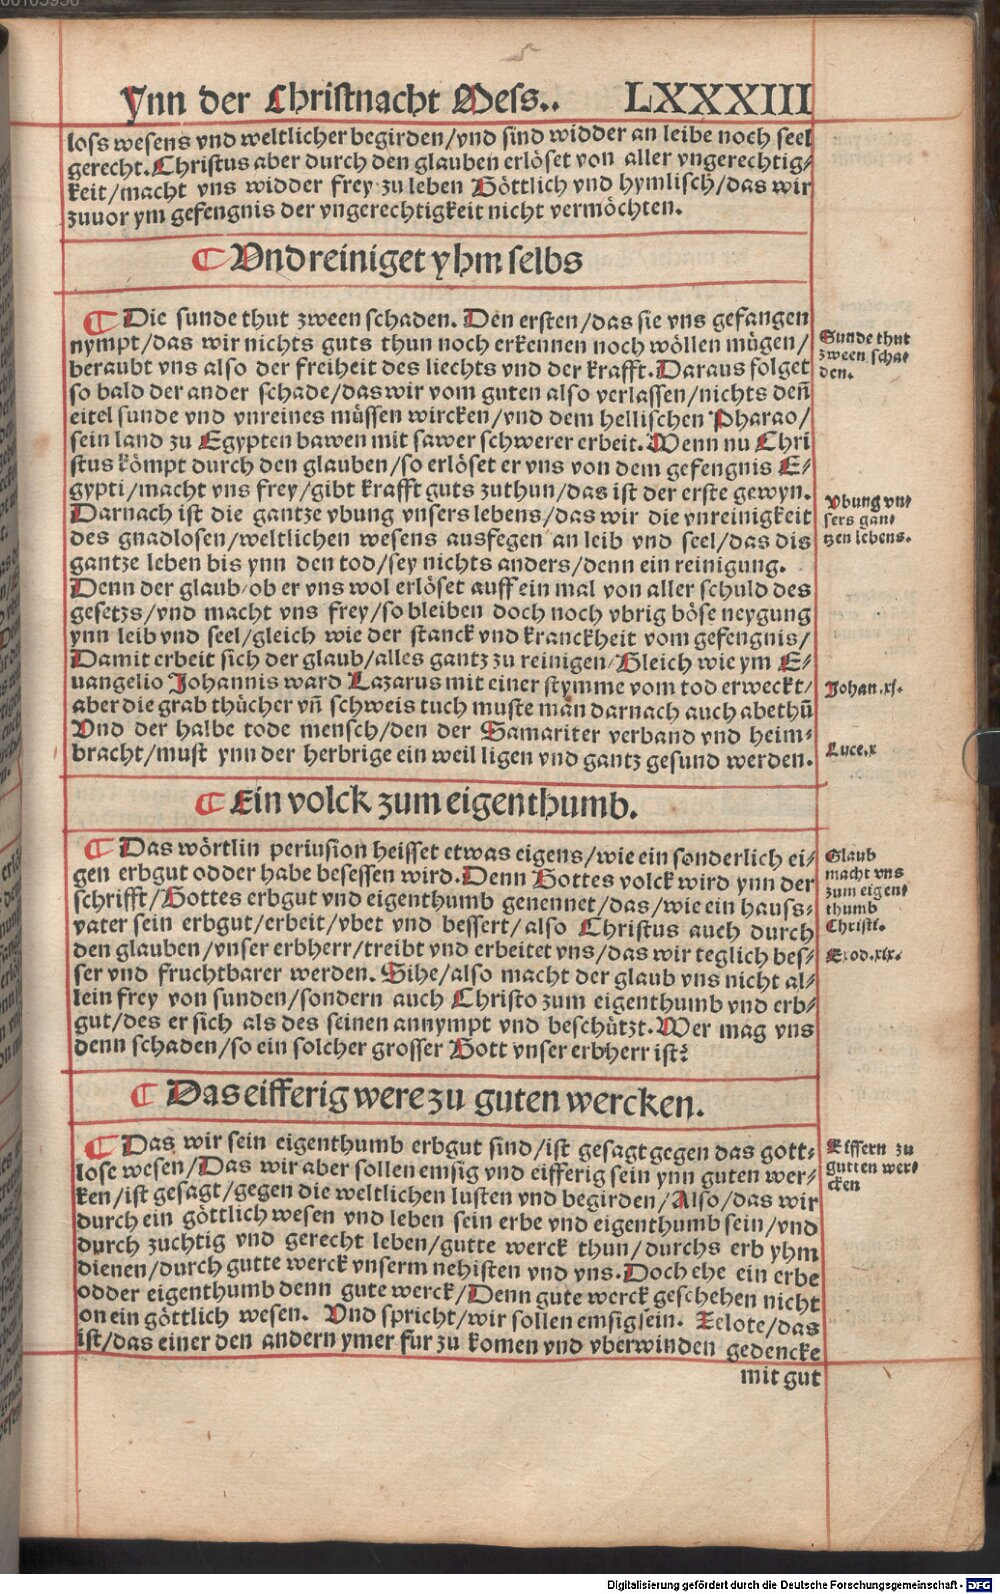 Ynn der Christnacht Mess.. LXXXIII
loss wesens vnd weltlicher begirden/vnd sind widder an leibe noch seel
gerecht. Christus aber durch den glauben erlöset von aller vngerechtig/
keit/macht vns widder frey zu leben Göttlich vnd hymlisch/das wir
zuuor ym gefengnis der vngerechtigkeit nicht vermöchten.
¶ Vnd reiniget yhm selbs
¶ Die sunde thut zween schaden. Den ersten/das sie vns gefangen
nympt/das wir nichts guts thun noch erkennen noch wöllen mügen/
beraubt vns also der freiheit des liechts vnd der krafft. Daraus folget
so bald der ander schade/das wir vom guten also verlassen/nichts deñ
eitel sunde vnd vnreines müssen wircken/vnd dem hellischen Pharao/
sein land zu Egypten bawen mit sawer schwerer erbeit. Wenn nu Chri
stus kömpt durch den glauben/so erlöset er vns von dem gefengnis E/
gypti/macht vns frey/gibt krafft guts zuthun/das ist der erste gewyn.
Darnach ist die gantze vbung vnsers lebens/das wir die vnreinigkeit
des gnadlosen/weltlichen wesens ausfegen an leib vnd seel/das dis
gantze leben bis ynn den tod/sey nichts anders/denn ein reinigung.
Denn der glaub/ob er vns wol erlöset auff ein mal von aller schuld des
gesetzs/vnd macht vns frey/so bleiben doch noch vbrig böse neygung
ynn leib vnd seel/gleich wie der stanck vnd kranckheit vom gefengnis/
Damit erbeit sich der glaub/alles gantz zu reinigen/Gleich wie ym E/
uangelio Johannis ward Lazarus mit einer stymme vom tod erweckt/
aber die grab thücher vñ schweis tuch muste man darnach auch abethů
Vnd der halbe tode mensch/den der Samariter verband vnd heim/
bracht/must ynn der herbrige ein weil ligen vnd gantz gesund werden.
¶ Ein volck zum eigenthumb.
¶ Das wörtlin periusion heisset etwas eigens/wie ein sonderlich ei/
gen erbgut odder habe besessen wird. Denn Gottes volck wird ynn der
schrifft/Gottes erbgut vnd eigenthumb genennet/das/wie ein hauss/
vater sein erbgut/erbeit/vbet vnd bessert/also Christus auch durch
den glauben/vnser erbherr/treibt vnd erbeitet vns/das wir teglich bes/
ser vnd fruchtbarer werden. Sihe/also macht der glaub vns nicht al/
lein frey von sunden/sondern auch Christo zum eigenthumb vnd erb/
gut/des er sich als des seinen annympt vnd beschützt. Wer mag vns
denn schaden/so ein solcher grosser Gott vnser erbherr ist?
¶ Das eifferig were zu guten wercken.
¶ Das wir sein eigenthumb erbgut sind/ist gesagt gegen das gott/
lose wesen/Das wir aber sollen emsig vnd eifferig sein ynn guten wer/
ken/ist gesagt/gegen die weltlichen lusten vnd begirden/Also/das wir
durch ein göttlich wesen vnd leben sein erbe vnd eigenthumb sein/vnd
durch zuchtig vnd gerecht leben/gutte werck thun/durchs erb yhm
dienen/durch gutte werck vnserm nehisten vnd vns. Doch ehe ein erbe
odder eigenthumb denn gute werck/Denn gute werck geschehen nicht
on ein göttlich wesen. Vnd spricht/wir sollen emsig sein. Zelote/das
ist/das einer den andern ymer fur zu komen vnd vberwinden gedencke
mit gut
Sunde thut
zween scha/
den.
Vbung vn/
sers gan/
tzen lebens.
Johan.xj.
Luce.x
Glaub
macht vns
zum eigen/
thumb
Christi.
Exod.xix.
Eiffern zu
gutten wer/
cken
Digitalisierung gefördert durch die Deutsche Forschungsgemeinschaft - DFG